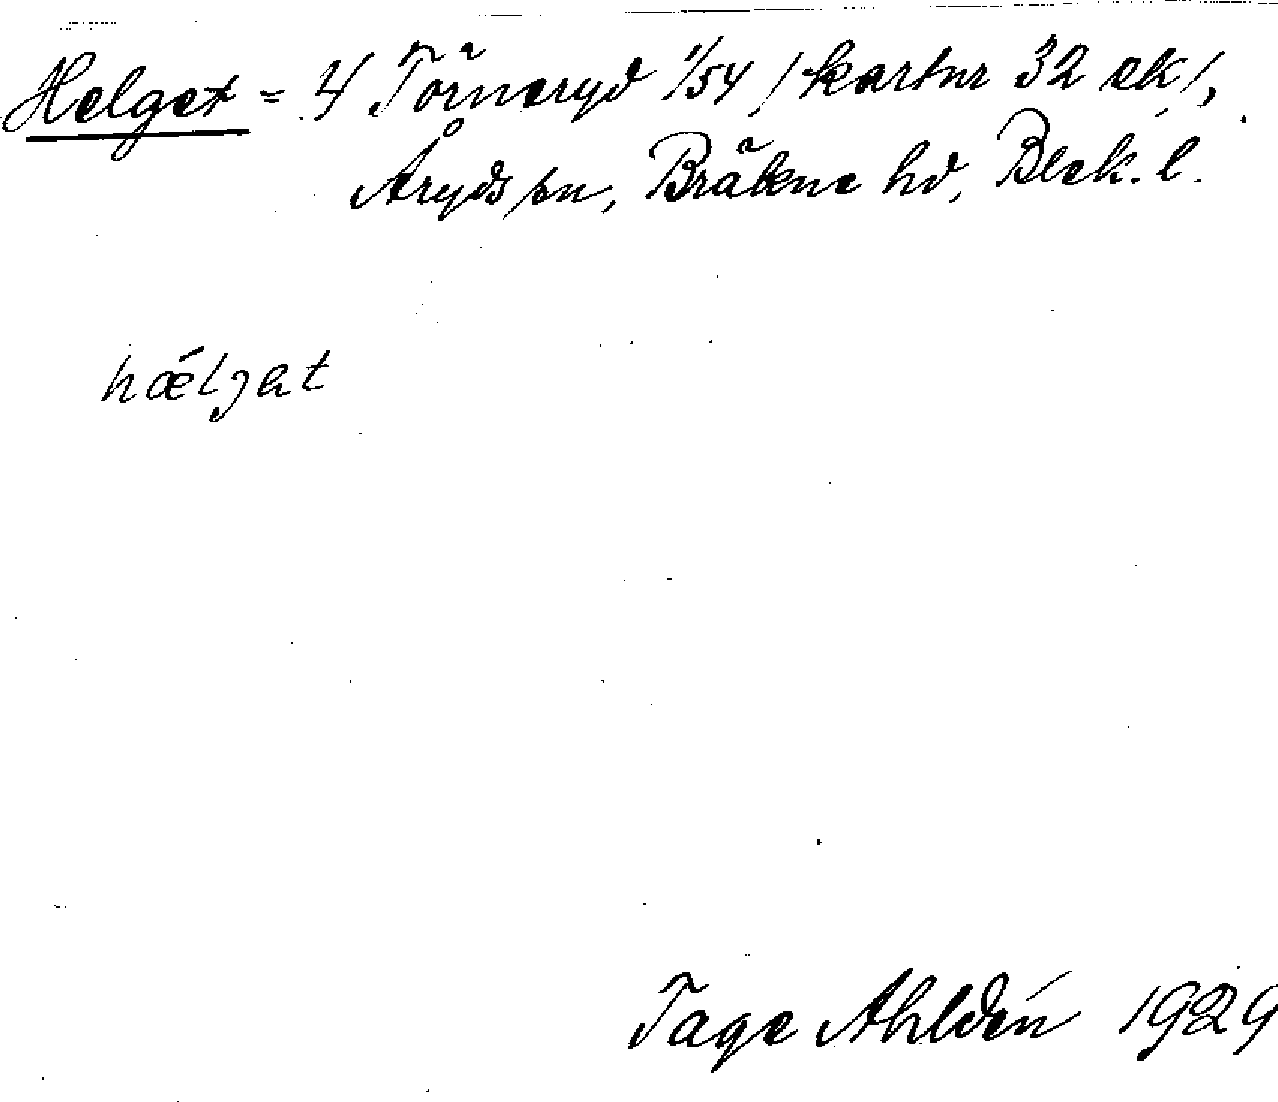 Helget = 4 Törneryd 1/54 /kartnr 32 ek/,
Åryds sn, Bräkne hd, Blek. l.
hǽlgat
Tage Ahldén 1929